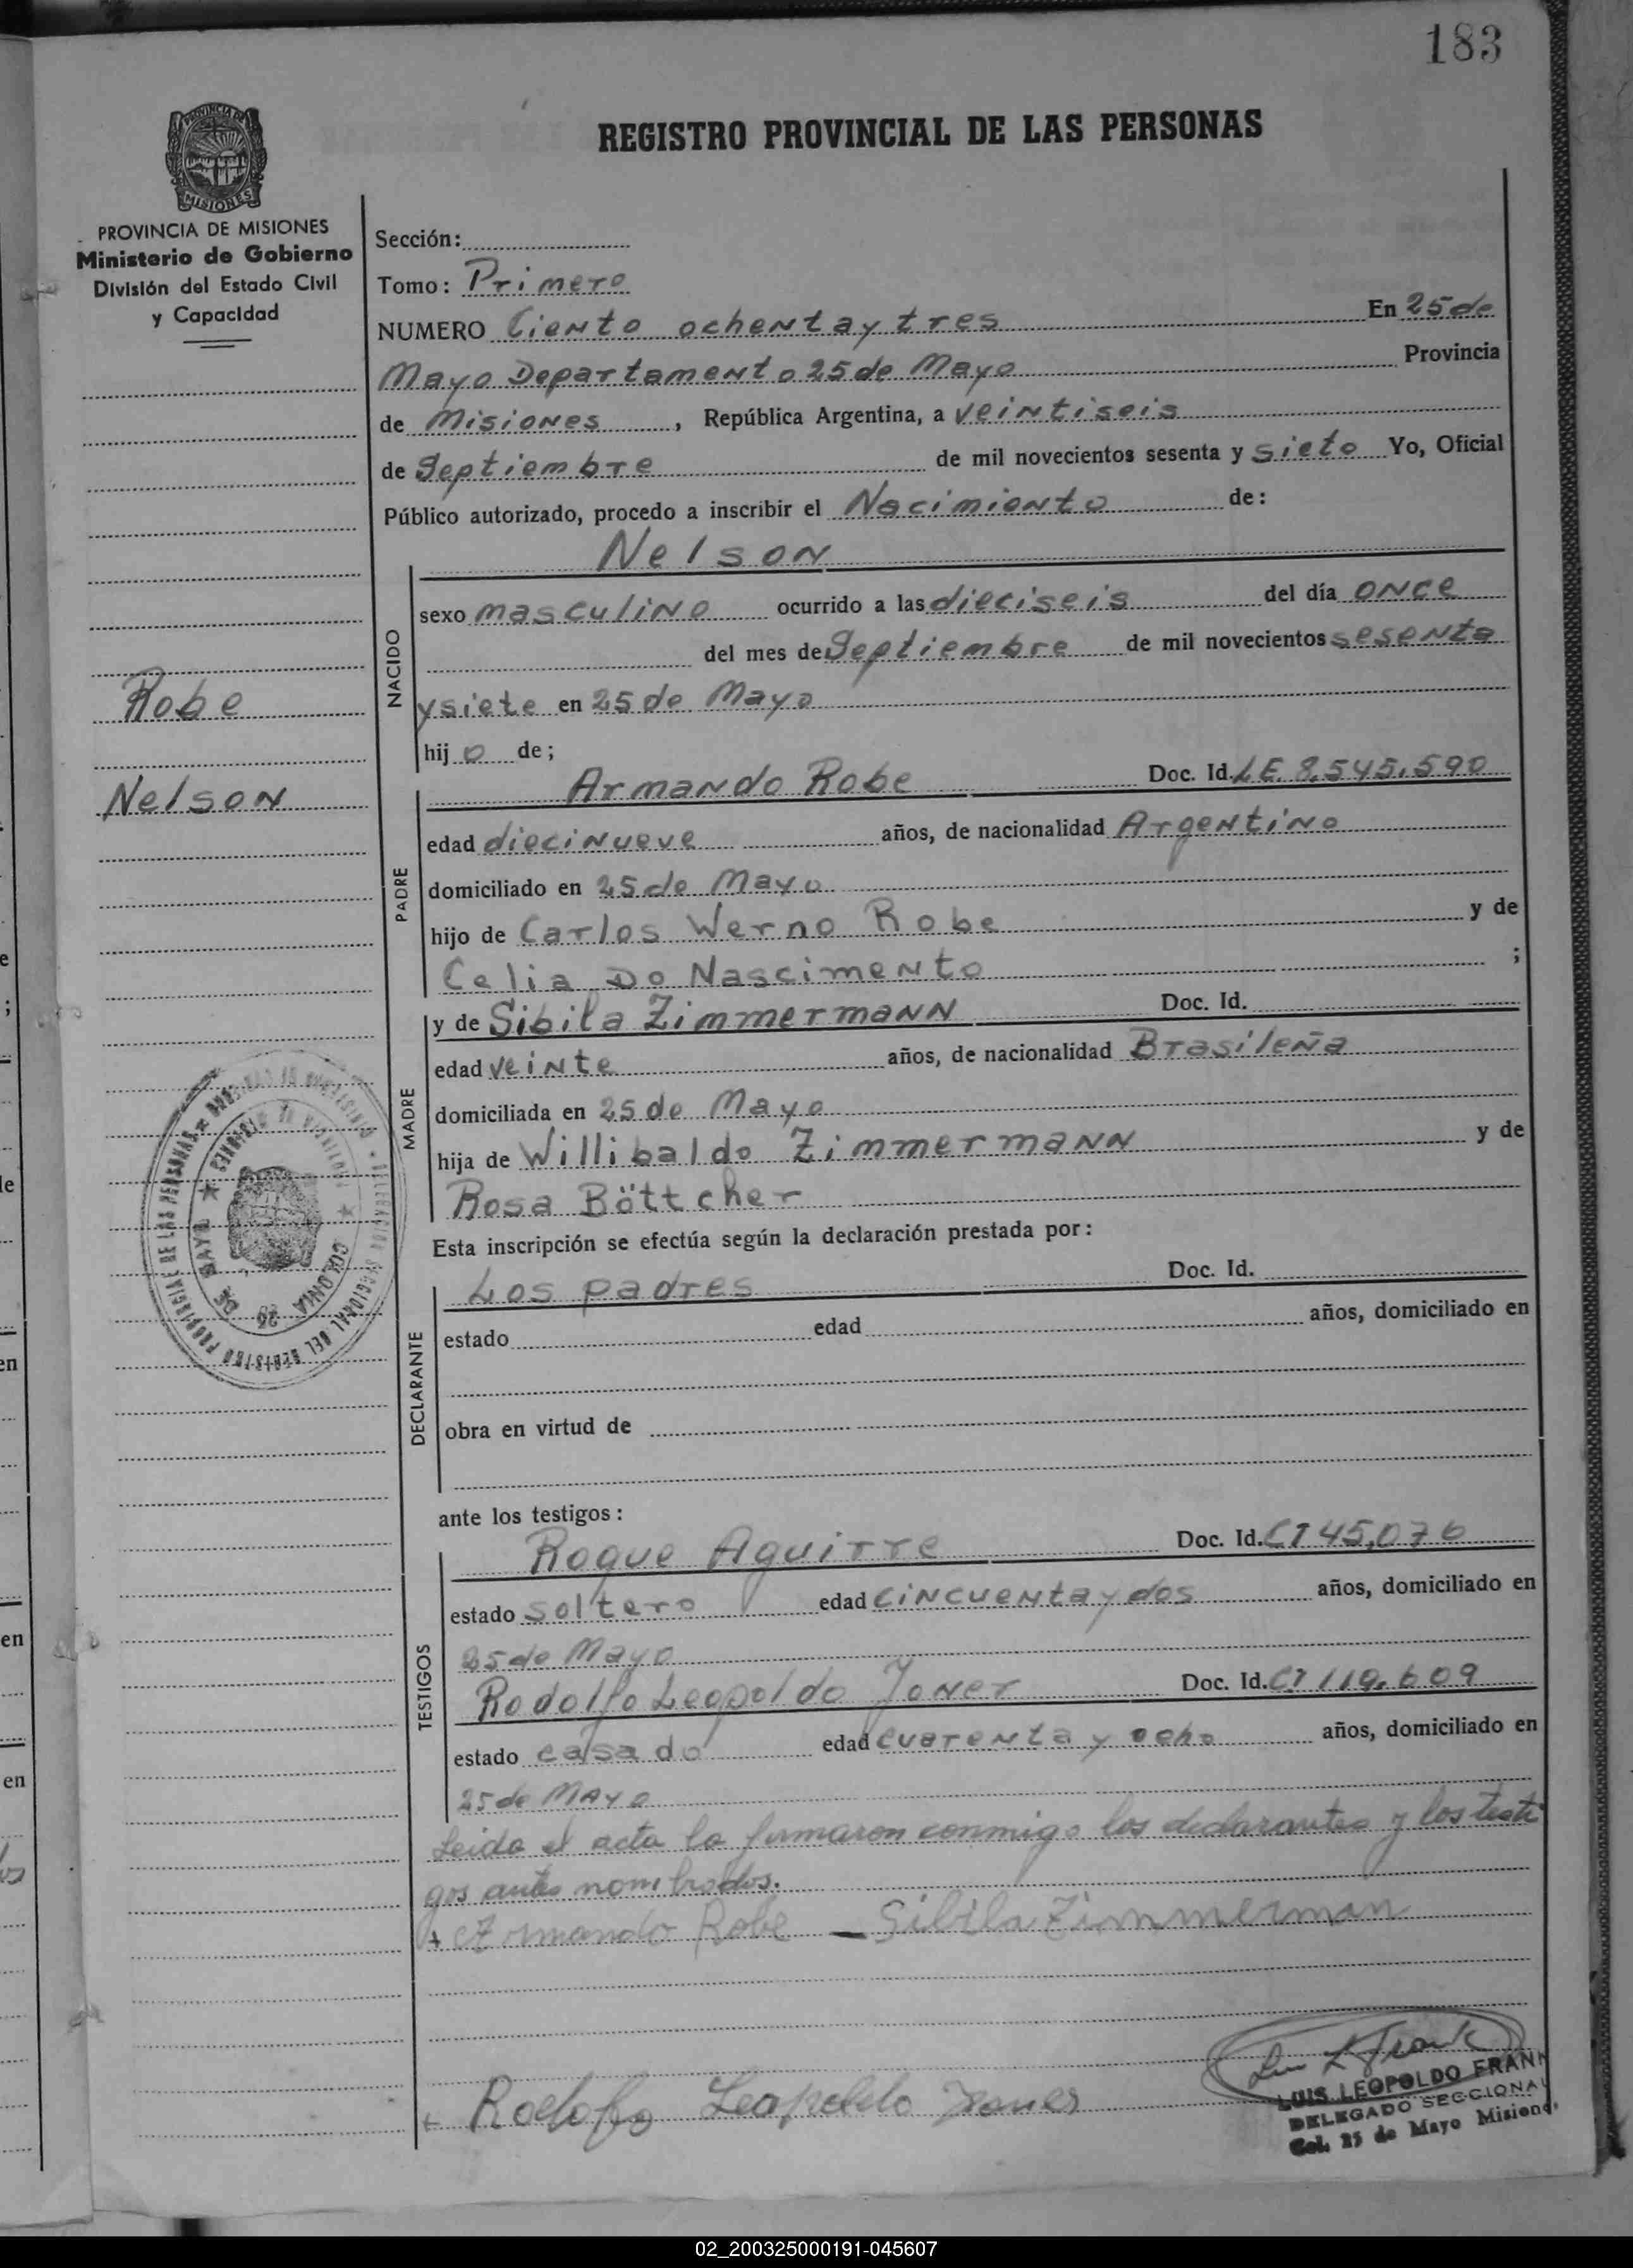 183
REGISTRO PROVINCIAL DE LAS PERSONAS
PROVINCIA DE MISIONES
Ministerio de Gobierno
División del Estado Civil
y Capacidad
Sección:
Tomo: Primero
NUMERO Ciento ochenta y tres En 25 de
Mayo Departamento 25 de Mayo Provincia
de Misiones, República Argentina, a veintiseis
de Septiembre de mil novecientos sesenta y siete Yo, Oficial
Público autorizado, procedo a inscribir el Nacimiento de:
Nelson
NACIDO
sexo masculino ocurrido a las dieciseis del día once
del mes de Septiembre de mil novecientos sesenta
y siete en 25 de Mayo
hijo de;
Robe
Nelson
PADRE
Armando Robe Doc. Id. LE. 8.545.590
edad diecinueve años, de nacionalidad Argentino
domiciliado en 25 de Mayo
hijo de Carlos Werno Robe y de
Celia Do Nascimento ;
MADRE
y de Sibila Zimmermann Doc. Id.
edad veinte años, de nacionalidad Brasileña
domiciliada en 25 de Mayo
hija de Willibaldo Zimmermann y de
Rosa Böttcher
Esta inscripción se efectúa según la declaración prestada por:
DECLARANTE
Los padres Doc. Id.
estado edad años, domiciliado en
obra en virtud de
ante los testigos:
TESTIGOS
Roque Aguirre Doc. Id. CI 45,076
estado soltero edad cincuenta y dos años, domiciliado en
25 de Mayo
Rodolfo Leopoldo Joner Doc. Id. CI 119.609
estado casado edad cuarenta y ocho años, domiciliado en
25 de Mayo
Leida el acta la firmaron conmigo los declarantes y los testi
gos antes nombrados.
+ Armando Robe — Sibila Zimmerman
Rodolfo Leopoldo Joner
LUIS LEOPOLDO FRANK
DELEGADO SECCIONAL
Col. 25 de Mayo Misiones
02_200325000191-045607